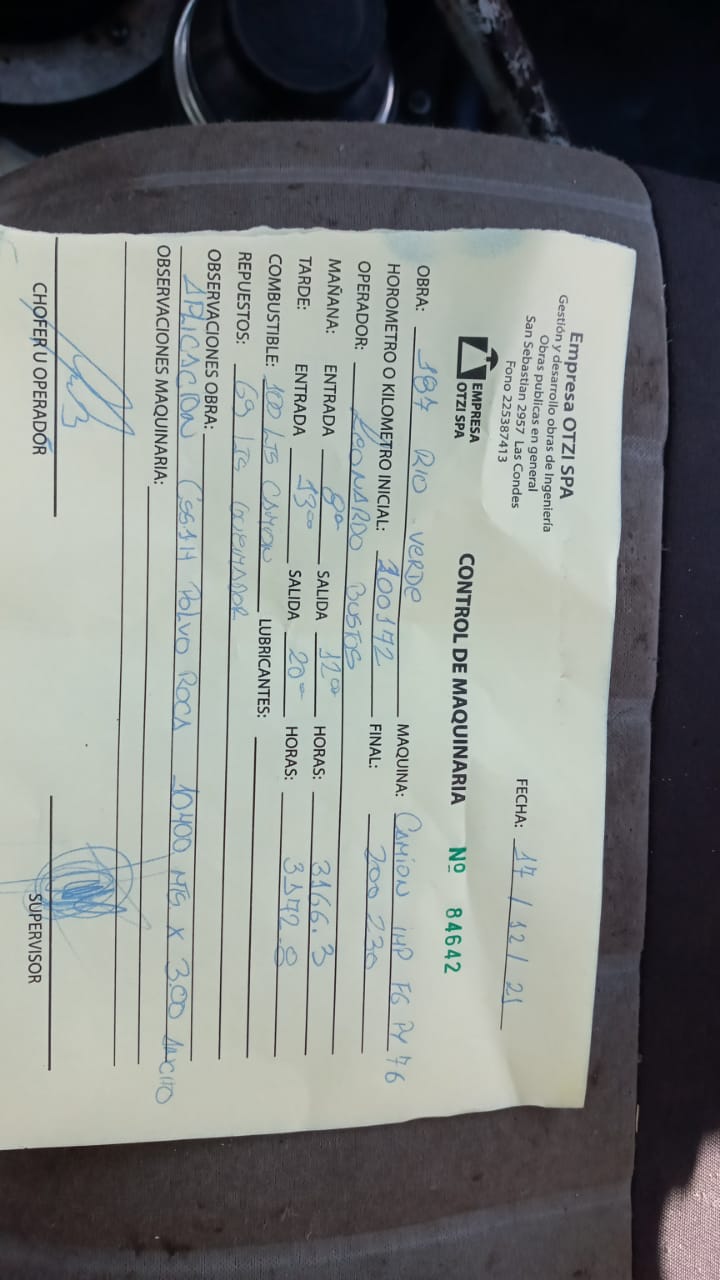 Empresa OTZI SPA
Gestión y desarrollo obras de Ingeniería
Obras publicas en general
San Sebastian 2957 Las Condes
Fono 225387413
EMPRESA
OTZI SPA
FECHA: 17 / 12 / 21
CONTROL DE MAQUINARIA Nº 84642
OBRA: 187 RIO VERDE MAQUINA: CAMION IMP FG PY 76
HOROMETRO O KILOMETRO INICIAL: 200172 FINAL: 200 230
OPERADOR: LEONARDO BUSTOS
MAÑANA: ENTRADA 8⁰⁰ SALIDA 12⁰⁰ HORAS: 3166.3
TARDE: ENTRADA 13⁰⁰ SALIDA 20⁰⁰ HORAS: 3172.8
COMBUSTIBLE: 100 LTS CAMION LUBRICANTES:
REPUESTOS: 69 LTS QUEMADOR
OBSERVACIONES OBRA:
APLICACION CSS1H POLVO ROCA 10400 MTS X 3.00 ANCHO
OBSERVACIONES MAQUINARIA:
CHOFER U OPERADOR SUPERVISOR